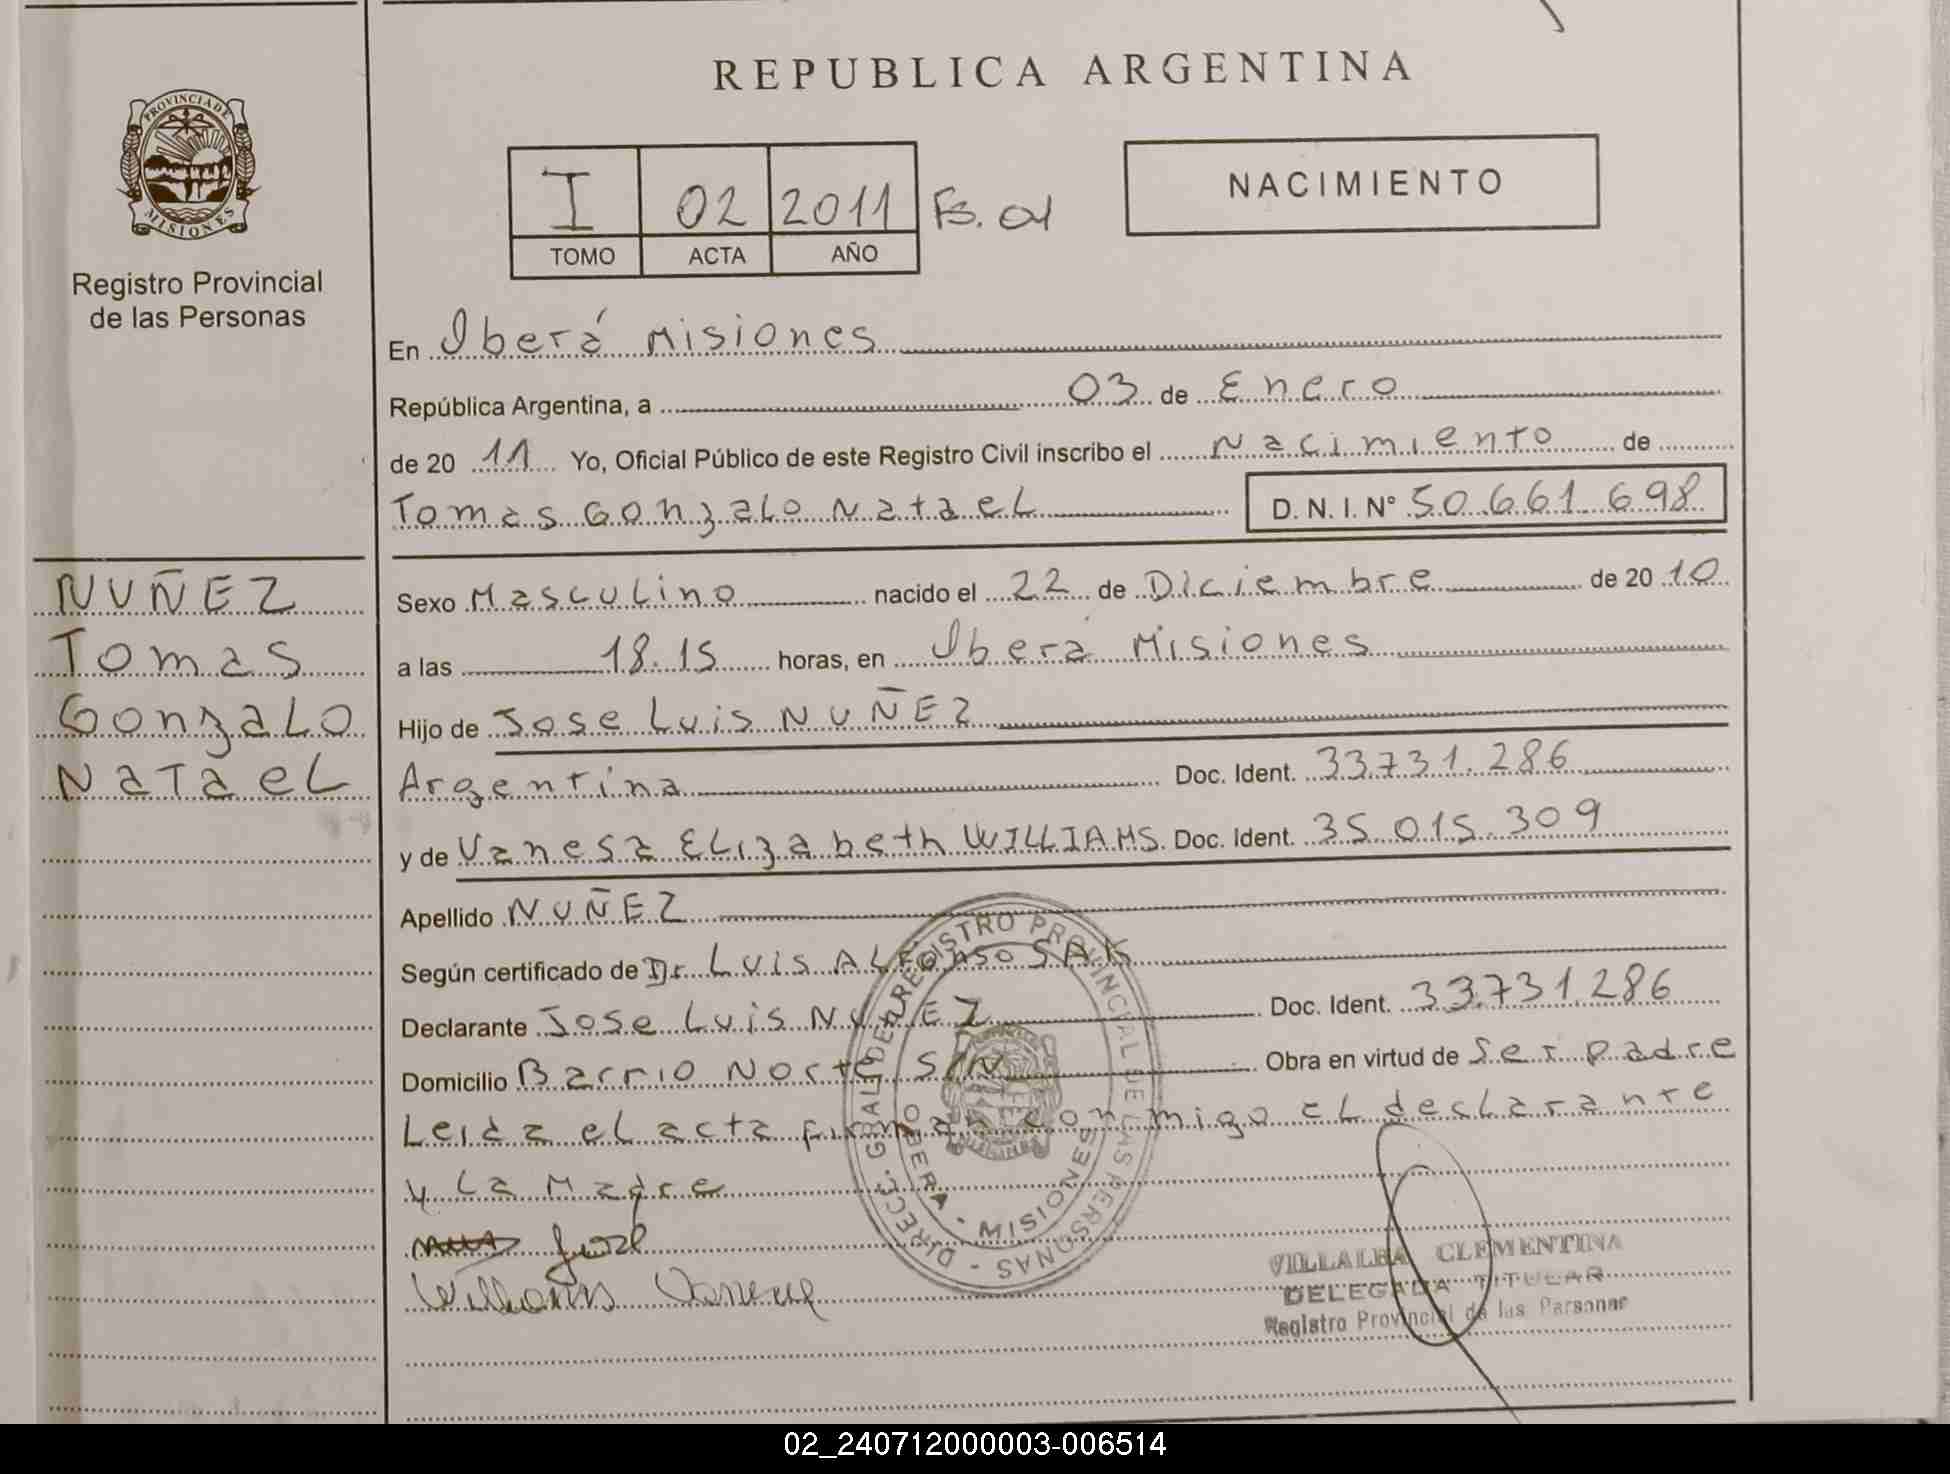 REPUBLICA ARGENTINA
PROVINCIA DE
MISIONES
Registro Provincial
de las Personas
I 02 2011 Fs. 01
TOMO ACTA AÑO
NACIMIENTO
En Iberá Misiones
República Argentina, a 03 de Enero
de 20 11 Yo, Oficial Público de este Registro Civil inscribo el Nacimiento de
Tomas Gonzalo Natael D. N. I. N° 50.661.698
NUÑEZ
Tomas
Gonzalo
Natael
Sexo Masculino nacido el 22 de Diciembre de 20 10
a las 18.15 horas, en Iberá Misiones
Hijo de Jose Luis NUÑEZ
Argentina Doc. Ident. 33.731.286
y de Vanesa Elizabeth WILLIAMS. Doc. Ident. 35.015.309
Apellido NUÑEZ
Según certificado de Dr. Luis Alfonso SAK
Declarante Jose Luis NUÑEZ Doc. Ident. 33.731.286
Domicilio Barrio Norte S/N Obra en virtud de Ser padre
Leida el acta firman conmigo el declarante
y La Madre
Williams Vanesa
DIREC. GRAL. DEL REGISTRO PROVINCIAL DE LAS PERSONAS
OBERA - MISIONES
VILLALBA CLEMENTINA
DELEGADA TITULAR
Registro Provincial de las Personas
02_240712000003-006514